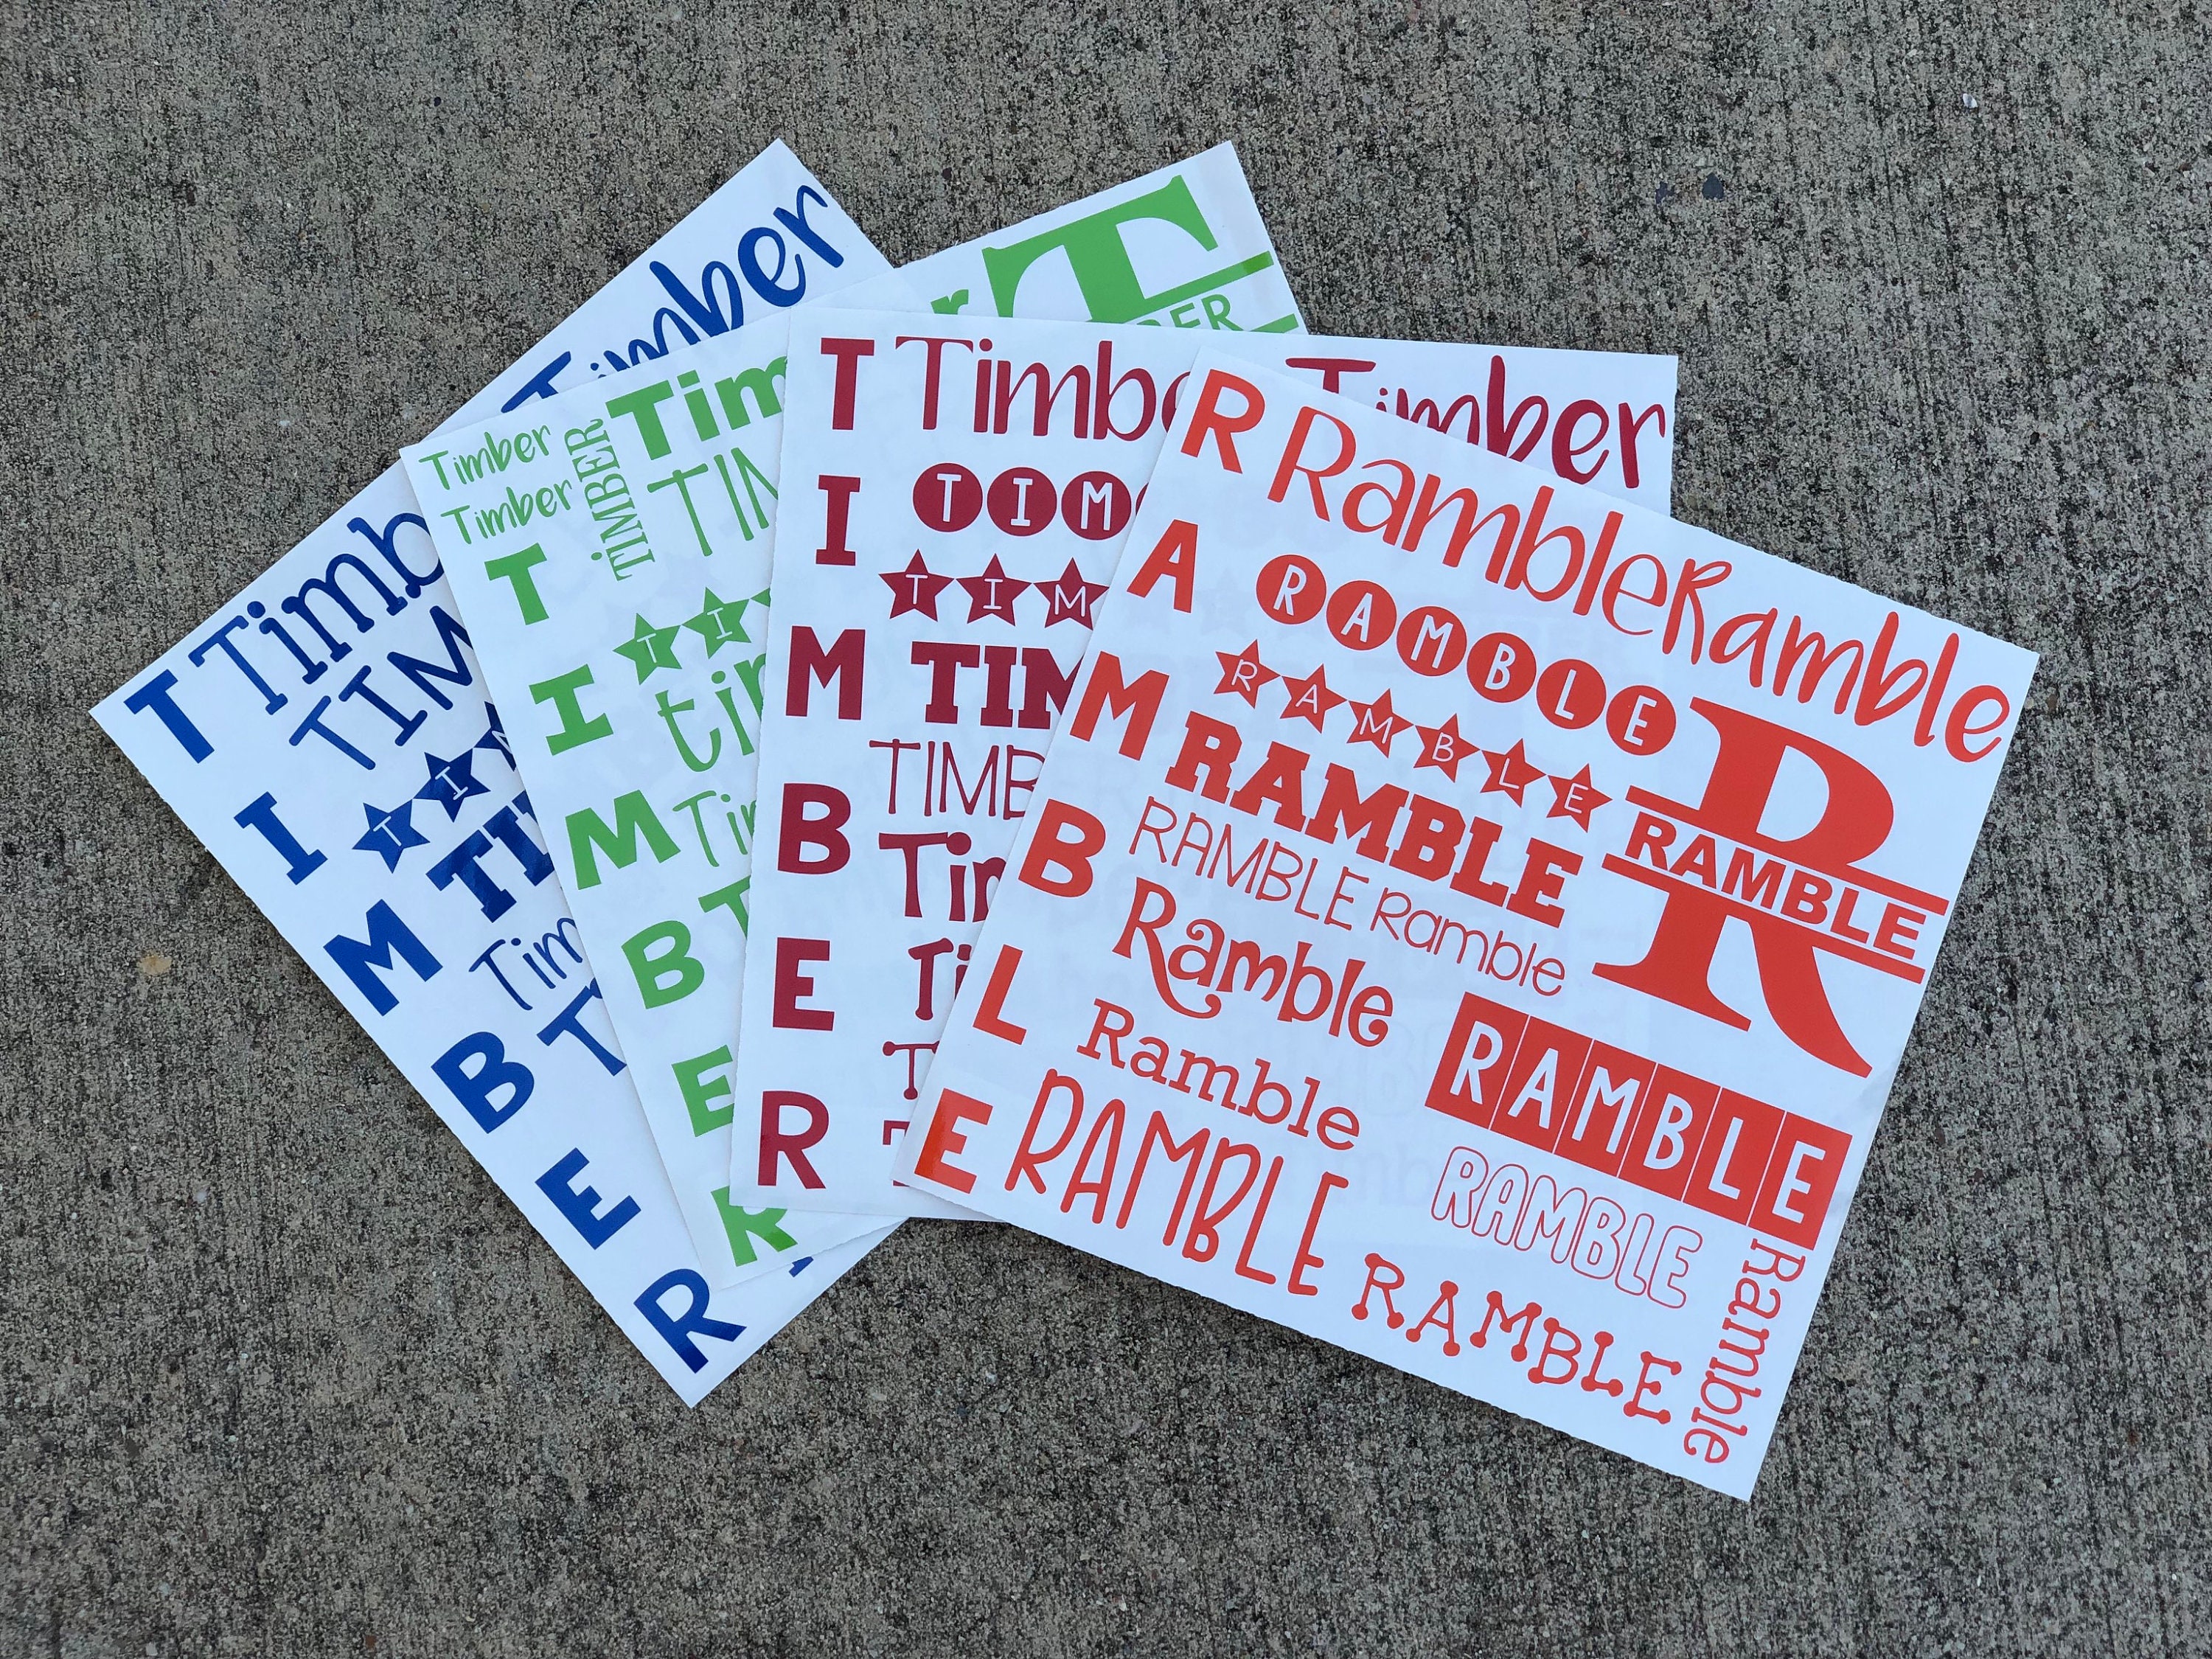 Timber
Timb
T
TIM
T I
TI
Tim
T
I
M
B
E
R
Timber
Timber
TIMBER
Tim
TIM
T
BER
T I
tim
Tim
T
I
M
B
E
R
T
I
M
B
E
R
Timbe
Timber
TIM
T I M
TIM
TIMB
Tim
Ti
T
T
R
A
M
B
L
E
Ramble Ramble
RAMBLE
RAMBLE
RAMBLE
RAMBLE Ramble
R
RAMBLE
Ramble
Ramble
RAMBLE
RAMBLE
RAMBLE
RAMBLE
Ramble